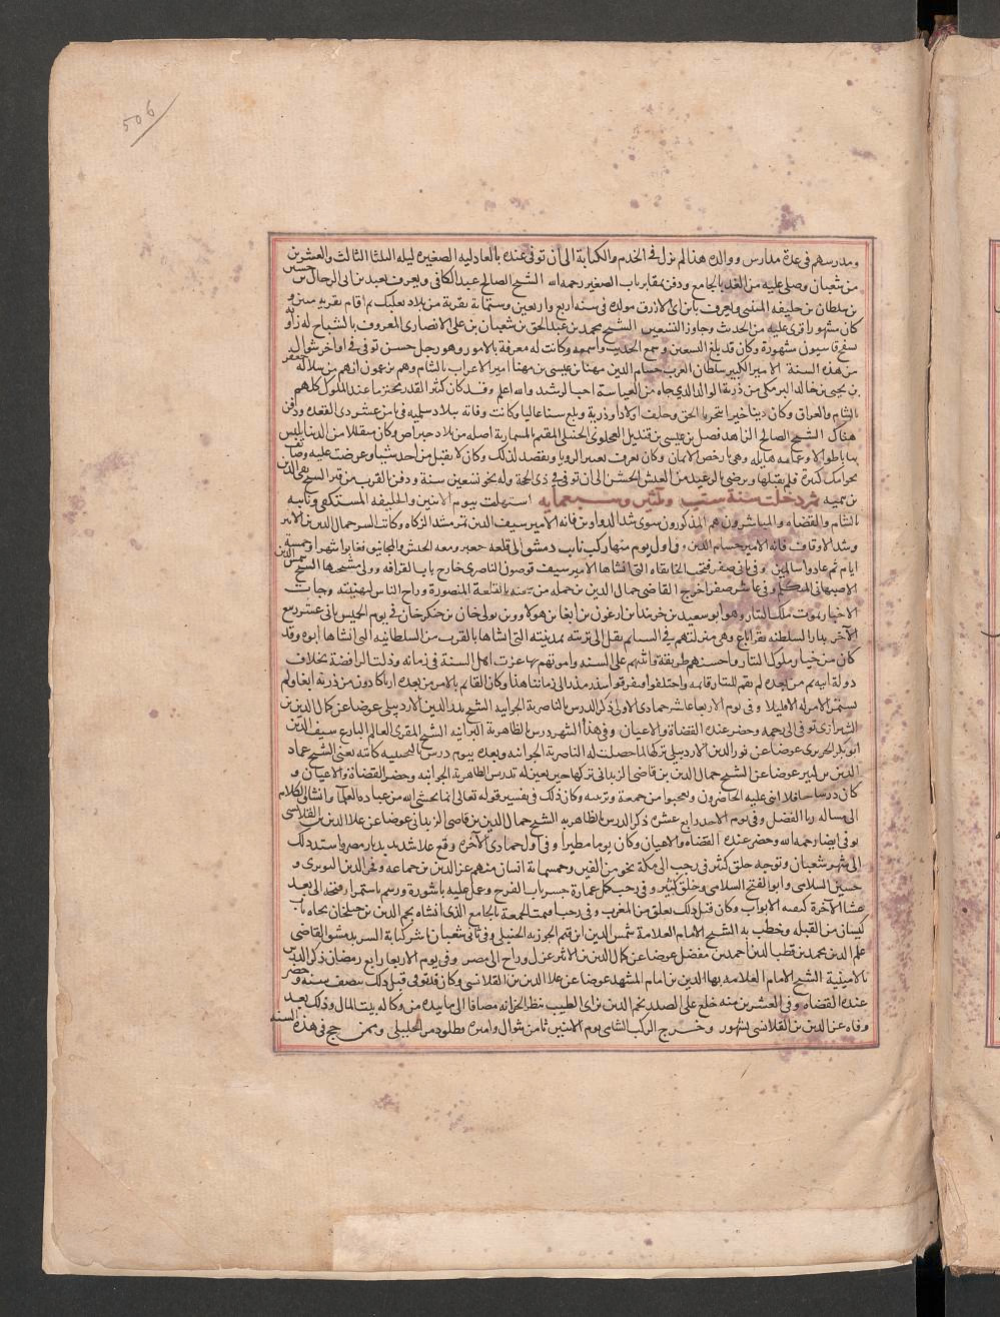 506
ومدرسهم في عدة مدارس ووالده هذا لم يزل في الخدم والكتابة الى ان توفى عنده بالعادلية الصغيرة ليلة الثلثا الثالث والعشرين
من شعبان وصلى عليه من الغد بالجامع ودفن بمقابر باب الصغير رحمه الله الشيخ الصالح عبد الكافي ويعرف بعبيد بن ابى الرجال بن حسين
بن سلطان بن خليفه المنيني ويعرف بابن ابى الازرق مولده في سنه اربع واربعين وستماية بقرية من بلاد بعلبك ثم اقام بقرية منين و
كان مشهورا قرى عليه من الحدث وجاوز التسعين الشيخ محمد بن عبد الحق بن شعبان بن على الانصارى المعروف بالشياح له زاوية
سفح قاسيون مشهورة وكان قد بلغ التسعين وسمع الحديث واسمعه وكانت له معرفة بالامور وهو رجل حسن توفى في اواخر شوال
من هذه السنة الامير الكبير سلطان العرب حسام الدين مهنا بن عيسى بن مهنا امير الاعراب بالشام وهم يزعمون انهم من سلالة جعفر
بن يحيى بن خالد البرمكي من ذرية الولد الذى جاه من العباسة اخت الرشيد والله اعلم وقد كان كبير القدر محترما عند الملوك كلهم
بالشام والعراق وكان دينا خيرا متحريا الحق وخلف اولادا وذرية وبلغ سنا عاليا وكانت وفاته ببلاد سلميه في ثامن عشر ذى القعده ودفن
هناك الشيخ الصالح الزاهد فضل بن عيسى بن قنديل العجلونى الحنبلى المقيم بالمسمارية اصله من بلاد حبراص وكان متقللا من الدنيا يلبس
ثيابا طوالا وعمامه هايله وهى بارخص الاثمان وكان يعرف تعبير الرويا ويقصد لذلك وكان لا يقبل من احد شيا وعرضت عليه وظائف
بجوامك كثيرة فلم يقبلها ويرضى بالرغيد من العيش الخشن الى ان توفى في ذى الحجة وله نحو تسعين سنة ودفن بالقرب من قبر الشيخ تقى الدين
بن تيميه ثم دخلت سنة ست وثلثين وسبعمايه استهلت بيوم الاثنين والخليفه المستكفى ونايبه
بالشام والقضاه والمباشرون هم المذكورون سوى شد الدواوين فانه الامير سيف الدين تمر مشد الزكاه وكاتب السر جمال الدين بن الاثير
وشد الاوقاف فانه الامير حسام الدين، واول يوم منها ركب نايب دمشق الى قلعه جعبر ومعه الجيش والمجانيق فغابوا شهرا وخمسة
ايام ثم عادوا سالمين وفي ثانى صفر فتحت الخانقاه التى انشاها الامير سيف قوصون الناصرى خارج باب القرافه وولى مشيختها الشيخ شمس الدين
الاصبهانى المتكلم وفي عاشر صفر اخرج القاضى جمال الدين بن حمله من سجنه بالقلعة المنصورة وراح الناس لتهنيته وجات
الاخبار بموت ملك التتار وهو ابو سعيد بن خربندا بن ارغون بن ابغا بن هولاكو بن تولى خان بن جنكز خان في يوم الخميس ثانى عشر ربيع
الآخر بدار السلطنه بقراباغ وهى منزلتهم في الشتا ثم نقل الى تربته بمدينته التى انشاها بالقرب من السلطانيه التى انشاها ابوه وقد
كان من خيار ملوك التتار واحسنهم طريقة واثبتهم على السنه واقومهم بها عزت اهل السنة في زمانه وذلت الرافضة بخلاف
دولة ابيه ثم من بعده لم يقم للتتار قايمه واختلفوا وتفرقوا شذر مذر الى زماننا هذا وكان القايم بالامر من بعده ارباكاون من ذرية ابغا ولم
يستمر الامر له الا قليلا وفى يوم الاربعا عاشر جمادى الاولى ذكر الدرس بالناصرية الجوانيه الشيخ بدر الدين الاردبيلى عوضا عن كمال الدين بن
الشيرازى توفى الى رحمه وحضر عنده القضاة والاعيان وفي هذا الشهر درس بالظاهرية البرانيه الشيخ المقرى العالم البارع سيف الدين
ابو بكر الحريرى عوضا عن نور الدين الاردبيلى تركها لما حصلت له الناصرية الجوانيه وبعده بيوم درس بالنجيبيه كاتبه يعنى الشيخ عماد
الدين بن كثير عوضا عن الشيخ جمال الدين بن قاضى الزبدانى تركها حين تعين له تدريس الظاهرية الجوانيه وحضر القضاة والاعيان و
كان درسا حافلا اثنى عليه الحاضرون وتعجبوا من جمعه وترتيبه وكان ذلك في تفسير قوله تعالى انما يخشى الله من عباده العلما وانشا الكلام
الى مساله ربا الفضل وفى يوم الاحد رابع عشره ذكر الدرس بالظاهريه الشيخ جمال الدين بن قاضى الزبدانى عوضا عن علا الدين بن القلانسى
توفى ايضا رحمه الله وحضر عنده القضاه والاعيان وكان يوما مطيرا وفى اول جمادى الآخرة وقع غلا شديد بديار مصر واشتد ذلك
الى شهر شعبان وتوجه خلق كثير في رجب الى مكة نحو من الفين وخمسماية انسان منهم عز الدين بن جماعه وفخر الدين النويرى و
حسين السلامى وابو الفتح السلامى وخلق كثير وفى رجب كمل عمارة جسر باب الفرج وعمل عليه باشورة ورسم باستمرار فتحه الى بعد
عشا الآخرة كبقيه الابواب وكان قبل ذلك يغلق من المغرب وفى رجب اقيمت الجمعة بالجامع الذى انشاه نجم الدين بن خليخان تجاه باب
كيسان من القبله وخطب به الشيخ الامام العلامة شمس الدين ابن قيم الجوزيه الحنبلى وفى ثانى شعبان باشر كتابة السر بدمشق القاضى
علم الدين محمد بن قطب الدين احمد بن مفضل عوضا عن كمال الدين بن الاثير عزل وراح الى مصر وفى يوم الاربعا رابع رمضان ذكر الدرس
بالامينية الشيخ الامام العلامه بها الدين بن امام المشهد عوضا عن علا الدين بن القلانسى وكان قد توفى قبل ذلك بنصف سنه وحضر
عنده القضاه وفى العشرين منه خلع على الصدر نجم الدين بن ابى الطيب بنظر الخزانه مضافا الى ما بيده من وكالة بيت المال وذلك بعد
وفاه عز الدين بن القلانسى بشهور وخرج الركب الشامى يوم الاثنين ثامن شوال واميره قطلودمر الخليلى وممن حج في هذه السنه